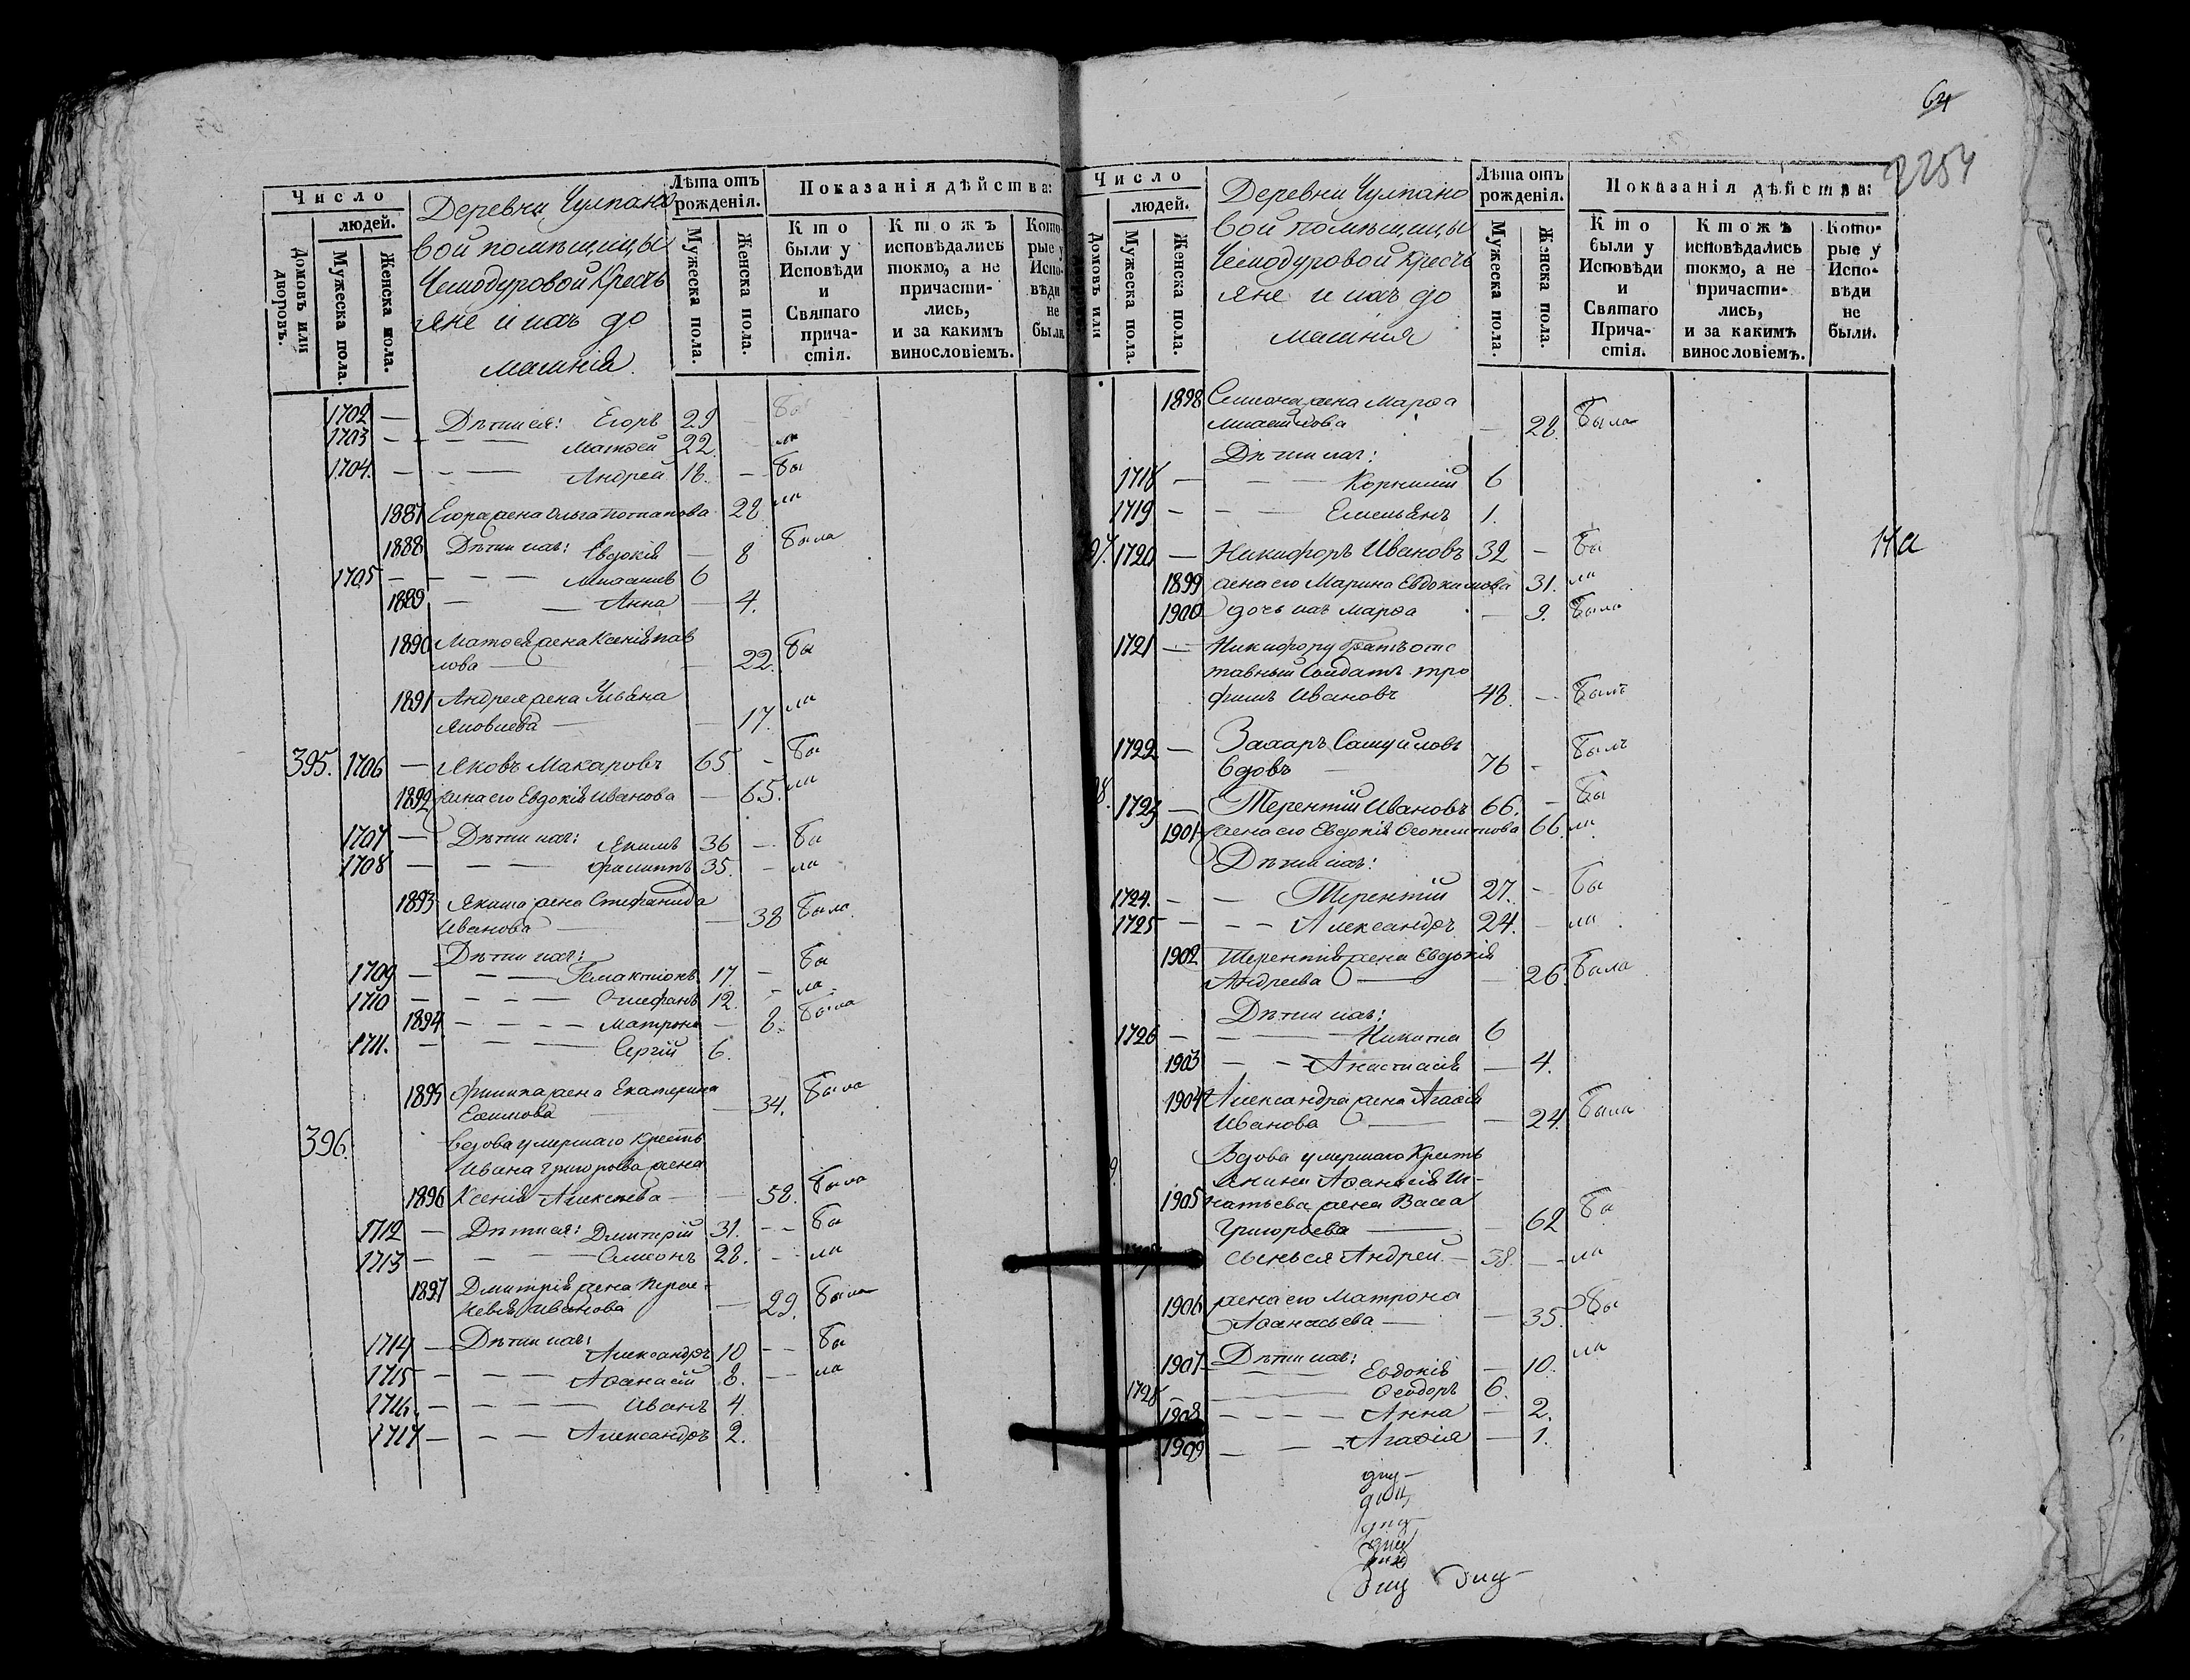 Число
людей.
Домовъ или дворовъ.
Мужеска пола.
Женска пола.
Деревни Чулпано
вой помѣщицы
Чемодуровой Кресть
яне и ихъ до
машнія.
Лѣта отъ рожденія.
Мужеска пола.
Женска пола.
Показанія дѣйства:
Кто были у Исповѣди и Святаго причастія.
Ктожъ исповѣдались токмо, а не причастились, и за какимъ винословіемъ.
Которые у Исповѣди не были.
1702 — Дѣти ея: Егоръ 29 — бы
1703 — — — Матѳей 22. — ли
1704. — — — Андрей 18. — бы
1887 Егора жена Ольга Потапова 28 ли
1888 Дѣти ихъ: Евдокія — 8 была
1705 — — — — Михаилъ 6
1889 — — Анна — 4.
1890 Матѳея жена Ксенія Пав
лова — — 22. бы
1891 Андрея жена Ульяна
Яковлева — — 17. ли
395. 1706 — Яковъ Макаровъ 65. — бы
1892 жена его Евдокія Иванова — 65. ли
1707 — Дѣти ихъ: Якимъ 36 — бы
1708 — — — Филиппъ 35. — ли
1893 Якима жена Стефанида
Иванова — — 38 была
Дѣти ихъ:
1709 — — — Галактіонъ 17. — бы
1710 — — — Стефанъ 12. — ли
1894 — — — — Матрона — 8. была
1711. — — — Сергій 6.
1895 Филипа жена Екатерина
Еѳимова — 34. была
396. вдова умершаго Кресть
Ивана Григорьева жена
1896 Ксенія Алексѣева — — 58. была
1712 — Дѣти ея: Дмитрій 31. — — бы
1713 — — — Симеонъ 28. — ли
1897 Дмитрія жена Парас-
кевія Иванова — 29. была
1714 — Дѣти ихъ: Александръ 10 — — бы
1715 — — — Аѳанасій 8. — — ли
1716. — — — — Иванъ 4
1717 — — — Александръ 2.
64
2254
Число
людей.
Домовъ или
Мужеска пола.
Женска пола.
Деревни Чулпано
вой помѣщицы
Чемодуровой Кресть
яне и ихъ до
машнія
Лѣта отъ рожденія.
Мужеска пола.
Женска пола.
Показанія дѣйства:
Кто были у Исповѣди и Святаго Причастія.
Ктожъ исповѣдались токмо, а не причастились, и за какимъ винословіемъ.
Которые у Исповѣди не были.
1898 Симеона жена Марѳа
Михайлова — 28. была
Дѣти ихъ:
1718 — — — Корнилій 6
1719 — — — Емельянъ 1.
97. 1720 — Никифоръ Ивановъ 32 — бы
1899 жена его Марина Евдокимова 31. ли
1900 дочь ихъ Марѳа — 9. была
1721 — Никифору братъ отс
тавный Солдатъ Тро
фимъ Ивановъ 48. — былъ
На
1722 — Захаръ Самуиловъ
вдовъ 76 — былъ
98. 1723 — Терентій Ивановъ 66. — бы
1901 жена его Евдокія Ѳеоктистова 66 ли
Дѣти ихъ:
1724. — — Терентій 27. — бы
1725 — — — Александръ 24. — ли
1902 Терентія жена Евдокія
Андреева — — 26. была
Дѣти ихъ:
1726 — — — Никита 6
1903 — — Анастасія — 4.
1904 Александра жена Агаѳія
Иванова — — 24. была
9. Вдова умершаго Кресть
янина Аѳанасія Иг-
1905 натьева жена Васса
Григорьева — — 62 бы
сынъ ея Андрей — 38. — — ли
1906 жена его Матрона
Аѳанасьева — — 35. бы
1907 Дѣти ихъ: Евдокія — 10. ли
1728 — Ѳеодоръ 6.
1908 — — — — Анна — 2.
1909 — — — Агаѳія — 1.